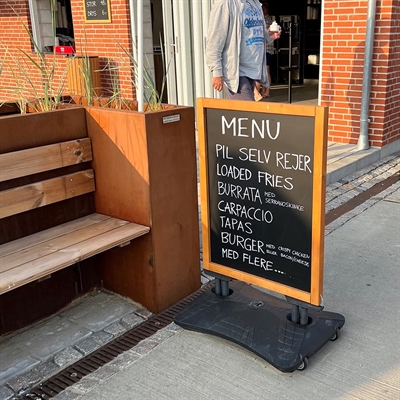 MENU
PIL SELV REJER
LOADED FRIES
BURRATA MED SERRANOSKINKE
CARPACCIO
TAPAS
BURGER MED CRISPY CHICKEN ELLER BACON/CHEESE
MED FLERE...